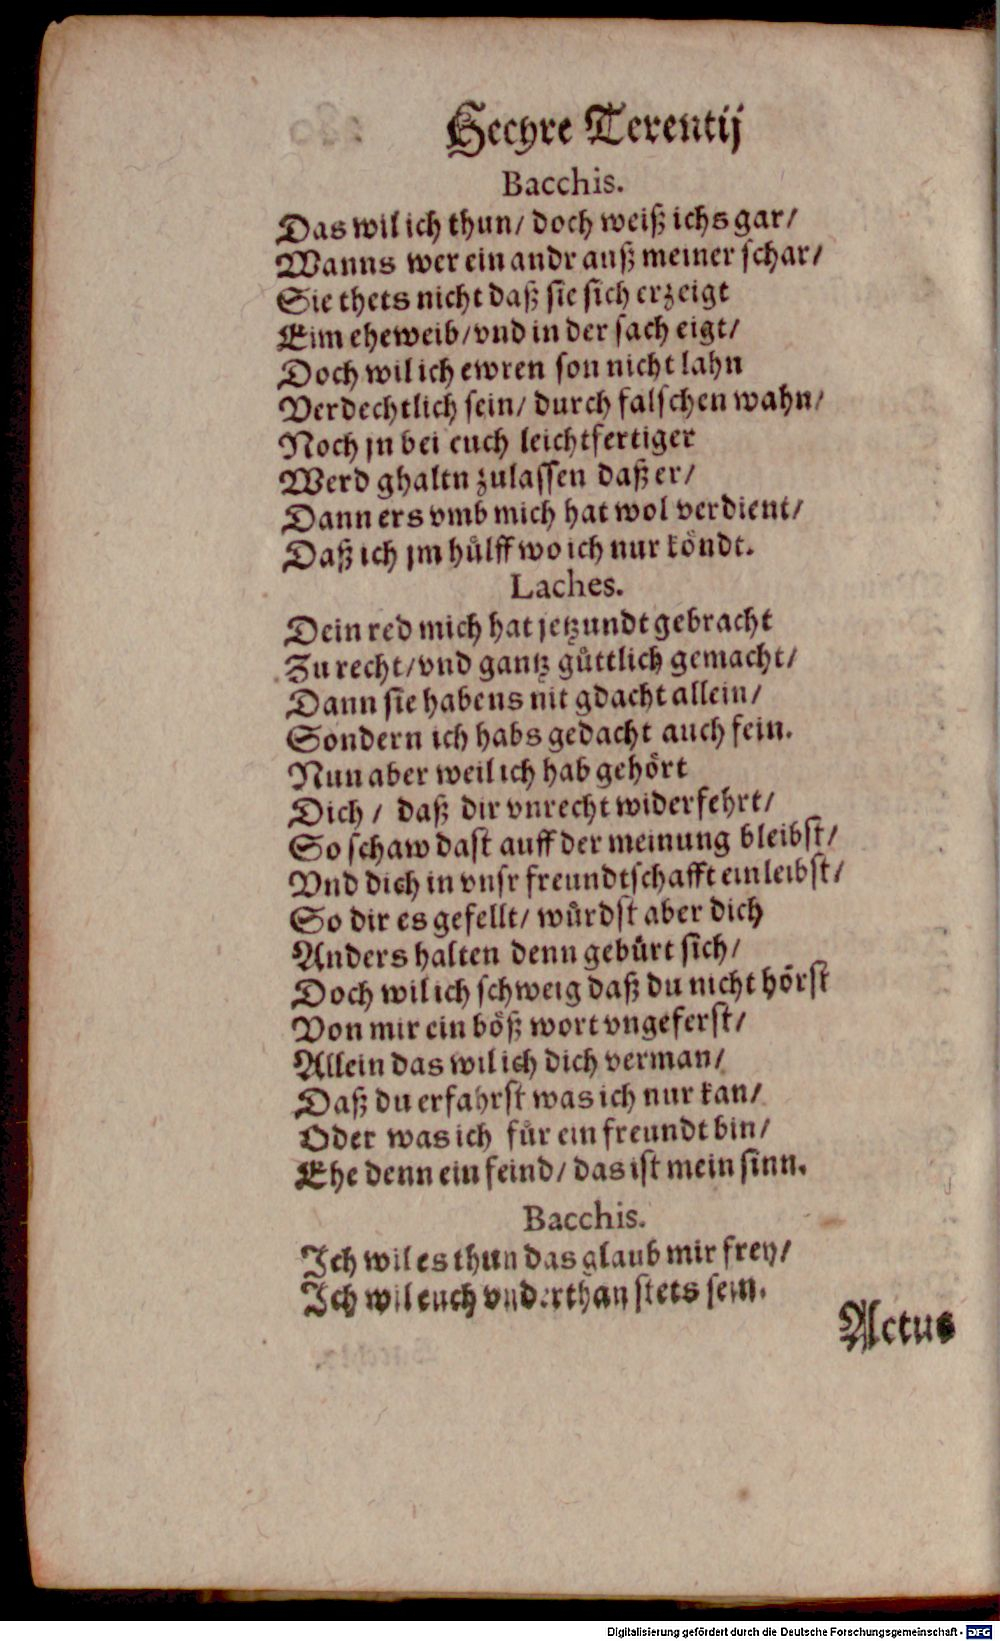 Hecyre Terentij
Bacchis.
Das wil ich thun/ doch weiß ichs gar/
Wanns wer ein andr auß meiner schar/
Sie thets nicht daß sie sich erzeigt
Eim eheweib/ vnd in der sach eigt/
Doch wil ich ewren son nicht lahn
Verdechtlich sein/ durch falschen wahn/
Noch jn bei euch leichtfertiger
Werd ghaltn zulassen daß er/
Dann ers vmb mich hat wol verdient/
Daß ich jm hůlff wo ich nur köndt.
Laches.
Dein red mich hat jetzundt gebracht
Zu recht/ vnd gantz gůttlich gemacht/
Dann sie habens nit gdacht allein/
Sondern ich habs gedacht auch fein.
Nun aber weil ich hab gehört
Dich / daß dir vnrecht widerfehrt/
So schaw dast auff der meinung bleibst/
Vnd dich in vnsr freundtschafft einleibst/
So dir es gefellt/ wůrdst aber dich
Anders halten denn gebůrt sich/
Doch wil ich schweig daß du nicht hörst
Von mir ein böß wort vngeferst/
Allein das wil ich dich verman/
Daß du erfahrst was ich nur kan/
Oder was ich fůr ein freundt bin/
Ehe denn ein feind/ das ist mein sinn.
Bacchis.
Ich wil es thun das glaub mir frey/
Ich wil euch vnderthan stets sein.
Actus
Digitalisierung gefördert durch die Deutsche Forschungsgemeinschaft - DFG